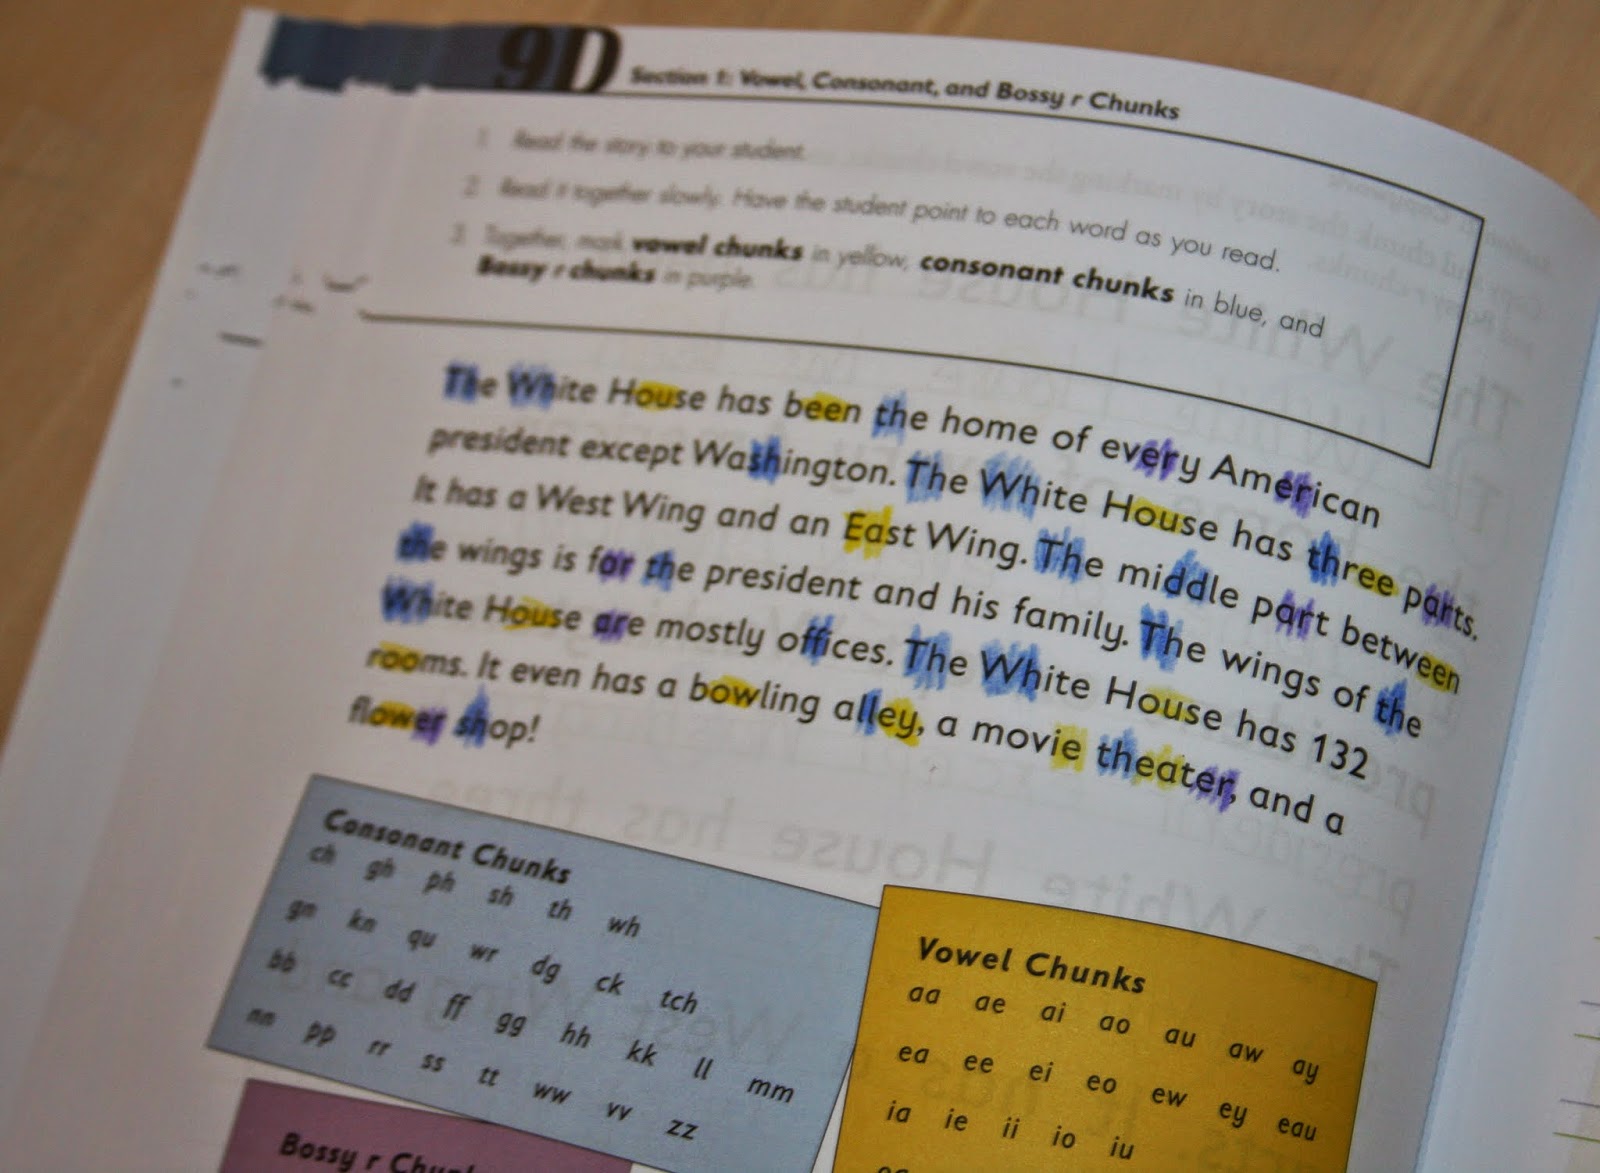 9D Section 1: Vowel, Consonant, and Bossy r Chunks
1 Read the story to your student.
2 Read it together slowly. Have the student point to each word as you read.
3 Together, mark vowel chunks in yellow, consonant chunks in blue, and
Bossy r chunks in purple.
The White House has been the home of every American
president except Washington. The White House has three parts.
It has a West Wing and an East Wing. The middle part between
the wings is for the president and his family. The wings of the
White House are mostly offices. The White House has 132
rooms. It even has a bowling alley, a movie theater, and a
flower shop!
Consonant Chunks
ch gh ph sh th wh
gn kn qu wr dg ck tch
bb cc dd ff gg hh kk ll mm
nn pp rr ss tt ww vv zz
Vowel Chunks
aa ae ai ao au aw ay
ea ee ei eo ew ey eau
ia ie ii io iu
Bossy r Chunks